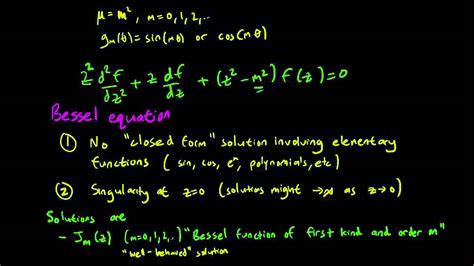 μ = m², m = 0, 1, 2, ..
gₘ(θ) = sin(mθ) or cos(mθ)
z² d²f/dz² + z df/dz + (z² - m²) f(z) = 0
Bessel equation
① No "closed form" solution involving elementary
functions (sin, cos, eˣ, polynomials, etc)
② Singularity at z=0 (solutions might → ∞ as z → 0)
Solutions are
- Jₘ(z) (m=0,1,2,.) "Bessel function of first kind and order m"
"well-behaved" solution